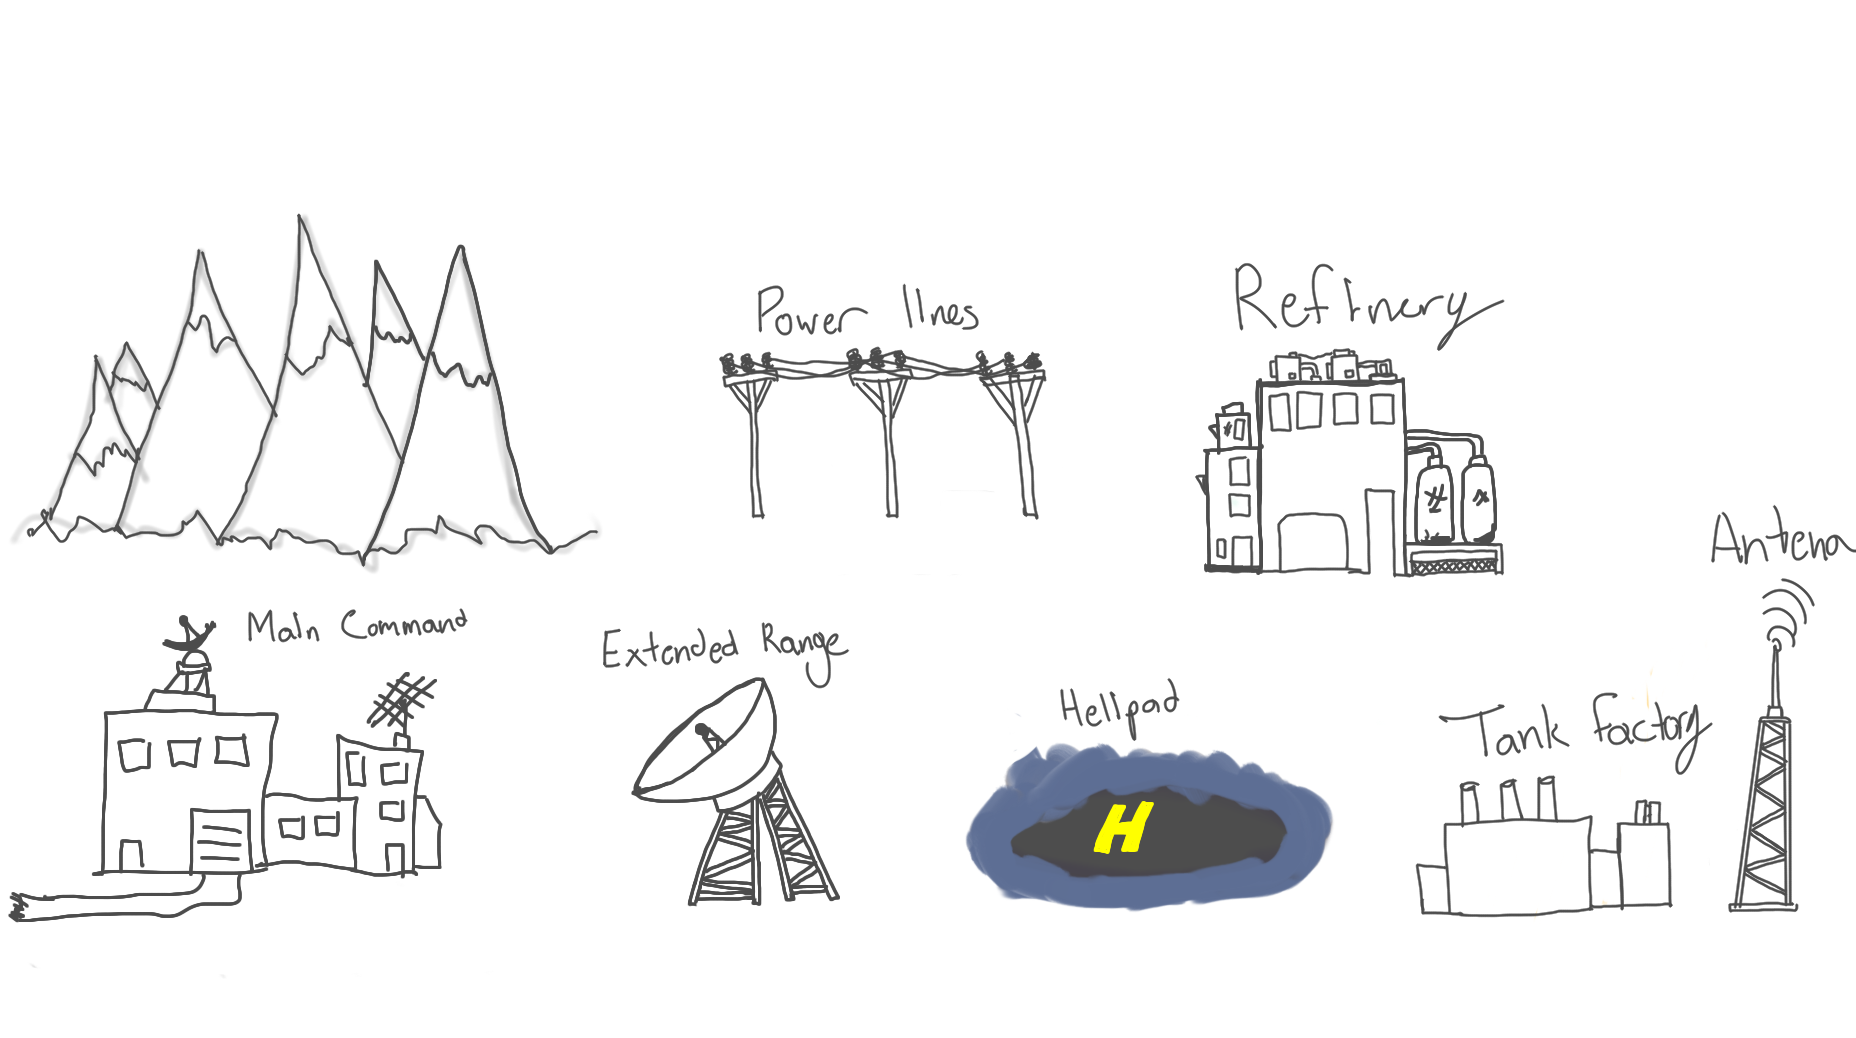 Power lines
Refinery
Antena
Main Command
Extended Range
Helipad
H
Tank factory